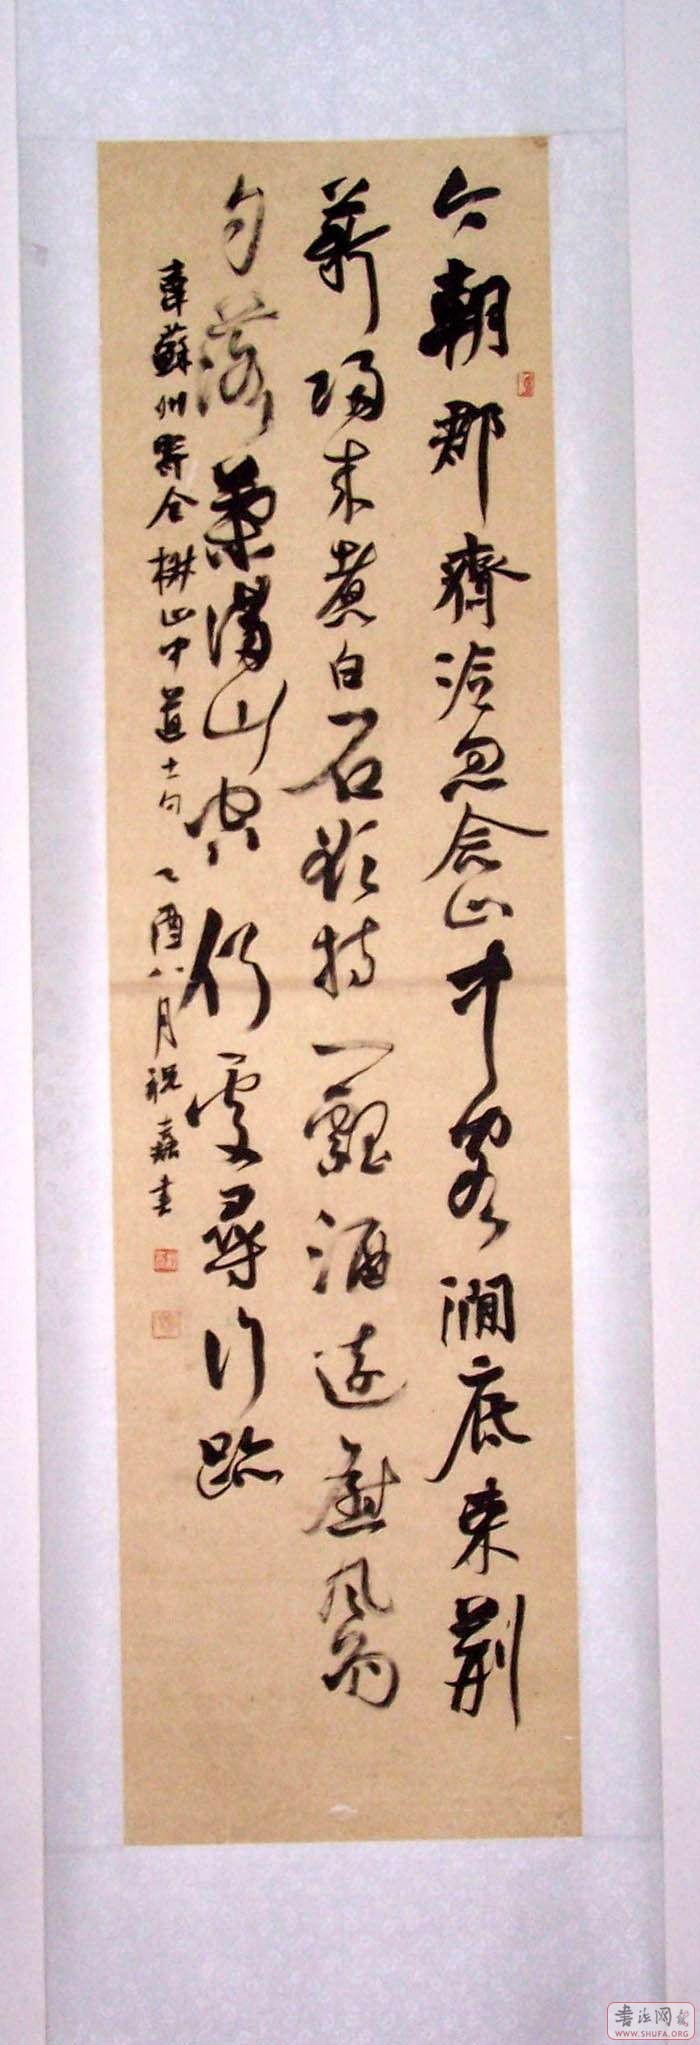 今朝郡齋冷忽念山中客澗底束荊
薪歸來煮白石欲持一瓢酒遠慰風雨
夕落葉滿山空何處尋行跡
韋蘇州寄全椒山中道士句 乙酉八月祝嘉書
書法网
WWW.SHUFA.ORG